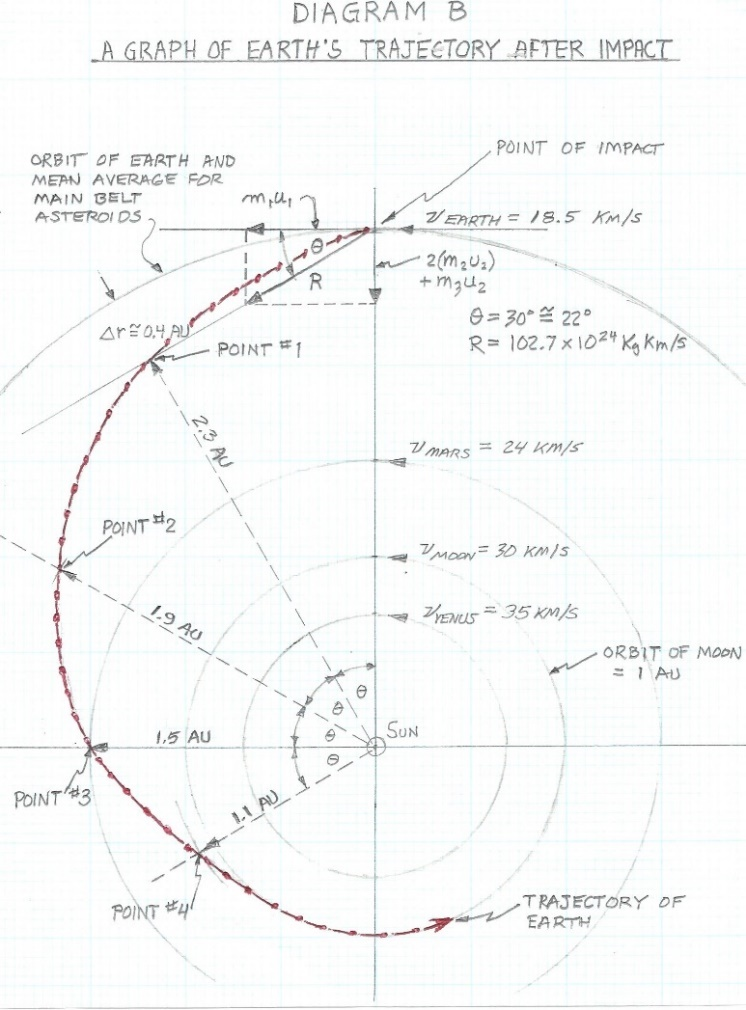 DIAGRAM B
A GRAPH OF EARTH'S TRAJECTORY AFTER IMPACT
POINT OF IMPACT
ORBIT OF EARTH AND
MEAN AVERAGE FOR
MAIN BELT
ASTEROIDS
m₁u₁
v EARTH = 18.5 KM/S
θ
R
2(m₂u₂)
+ m₃u₂
θ = 30° ≅ 22°
R = 102.7 x 10²⁴ Kg Km/s
Δr ≅ 0.4 AU
POINT #1
2.3 AU
v MARS = 24 KM/S
POINT #2
v MOON = 30 KM/S
1.9 AU
v VENUS = 35 KM/S
ORBIT OF MOON
= 1 AU
θ
θ
θ
θ
SUN
1.5 AU
POINT #3
1.1 AU
POINT #4
TRAJECTORY OF
EARTH